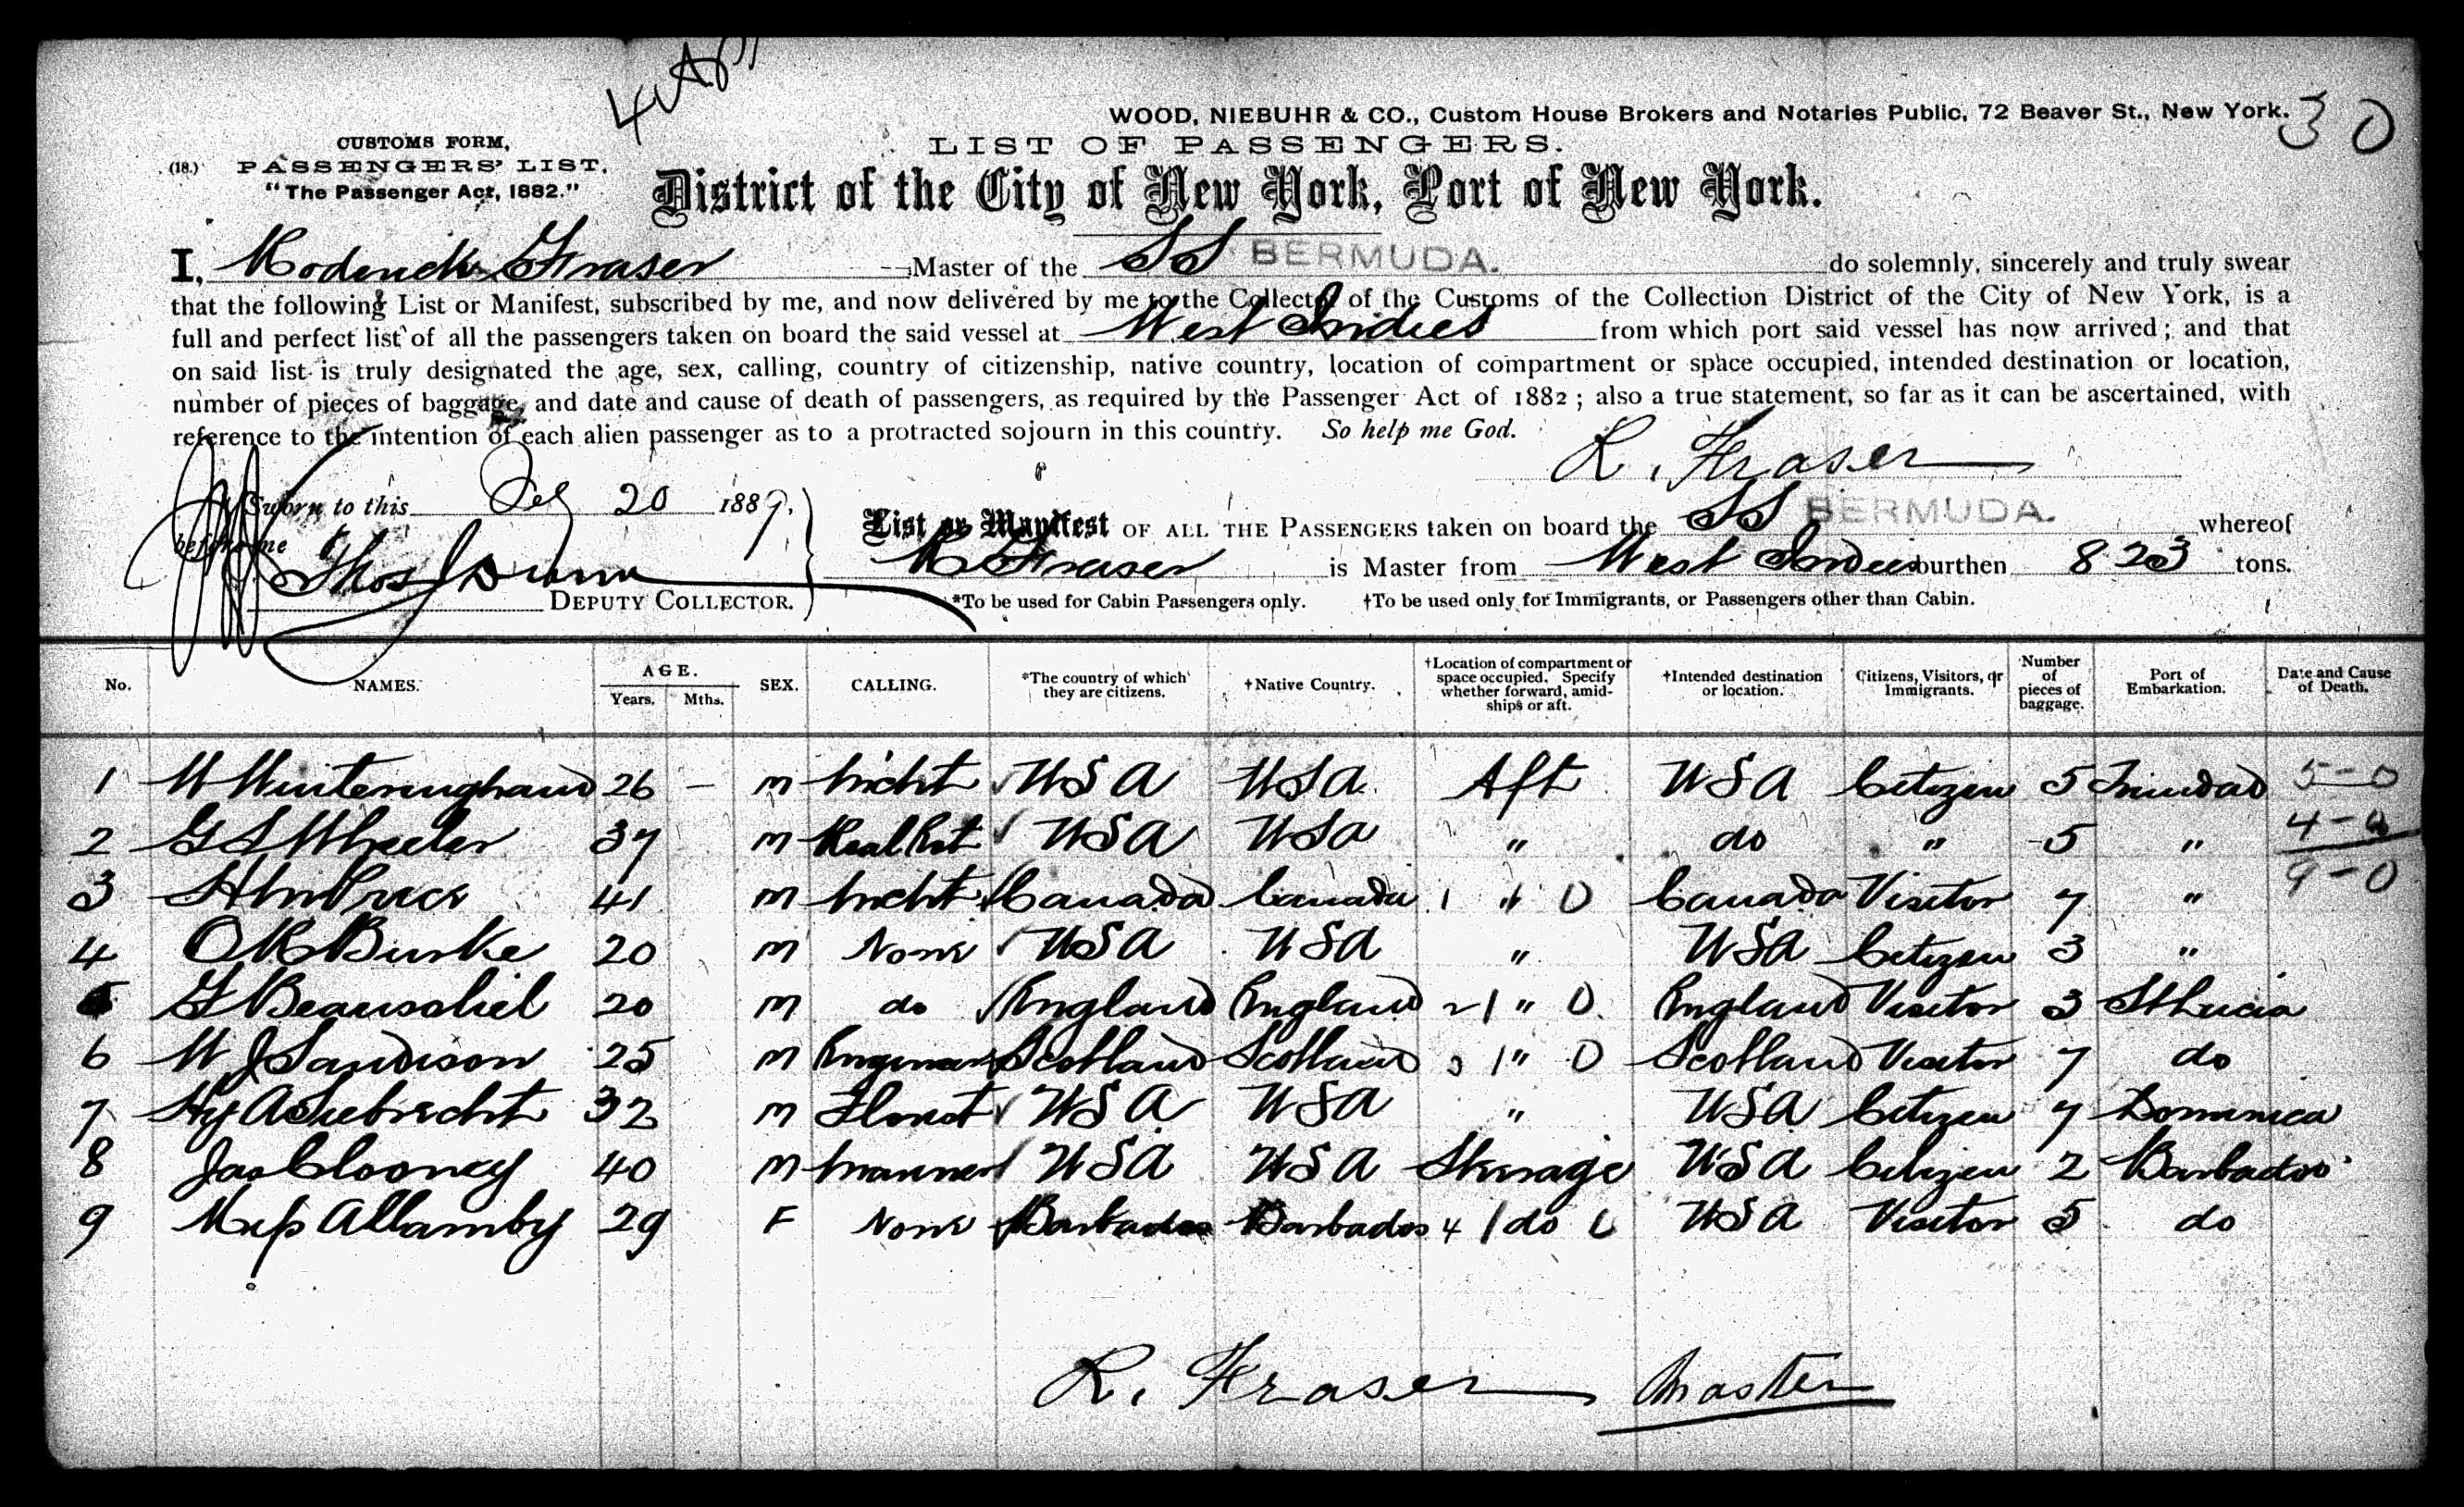 WOOD, NIEBUHR & CO., Custom House Brokers and Notaries Public, 72 Beaver St., New York.
30
CUSTOMS FORM,
(18.) PASSENGERS' LIST.
"The Passenger Act, 1882."
LIST OF PASSENGERS.
District of the City of New York, Port of New York.
I, Roderick Fraser Master of the SS BERMUDA. do solemnly, sincerely and truly swear
that the following List or Manifest, subscribed by me, and now delivered by me to the Collector of the Customs of the Collection District of the City of New York, is a
full and perfect list of all the passengers taken on board the said vessel at West Indies from which port said vessel has now arrived; and that
on said list is truly designated the age, sex, calling, country of citizenship, native country, location of compartment or space occupied, intended destination or location,
number of pieces of baggage, and date and cause of death of passengers, as required by the Passenger Act of 1882; also a true statement, so far as it can be ascertained, with
reference to the intention of each alien passenger as to a protracted sojourn in this country. So help me God.
R. Fraser
Sworn to this 20 1889.
before me
Thos J Dunn
DEPUTY COLLECTOR.
List or Manifest OF ALL THE PASSENGERS taken on board the SS BERMUDA. whereof
R Fraser is Master from West Indies burthen 823 tons.
*To be used for Cabin Passengers only. †To be used only for Immigrants, or Passengers other than Cabin.
No. NAMES. AGE. Years. Mths. SEX. CALLING. *The country of which they are citizens. †Native Country. †Location of compartment or space occupied. Specify whether forward, amidships or aft. †Intended destination or location. Citizens, Visitors, or Immigrants. Number of pieces of baggage. Port of Embarkation. Date and Cause of Death.
1 W Winteringham 26 – m Mcht USA USA Aft USA Citizen 5 Trinidad 5-0
2 G S Wheeler 37 m USA USA " do " 5 " 4-0
3 41 m Mcht Canada Canada 1 " 0 Canada Visitor 7 " 9-0
4 O R Burke 20 m None USA USA " USA Citizen 3 "
5 G Beausoliel 20 m do England England 2 1 " 0 England Visitor 3 St Lucia
6 W J Sandison 25 m Scotland Scotland 3 1 " 0 Scotland Visitor 7 do
7 Hy A Siebrecht 32 m Florist USA USA " USA Citizen 7 Dominica
8 Jas Clooney 40 m Mariner USA USA Steerage USA Citizen 2 Barbados
9 Miss Allamby 29 F None Barbados Barbados 4 1 do 0 USA Visitor 5 do
R. Fraser Master